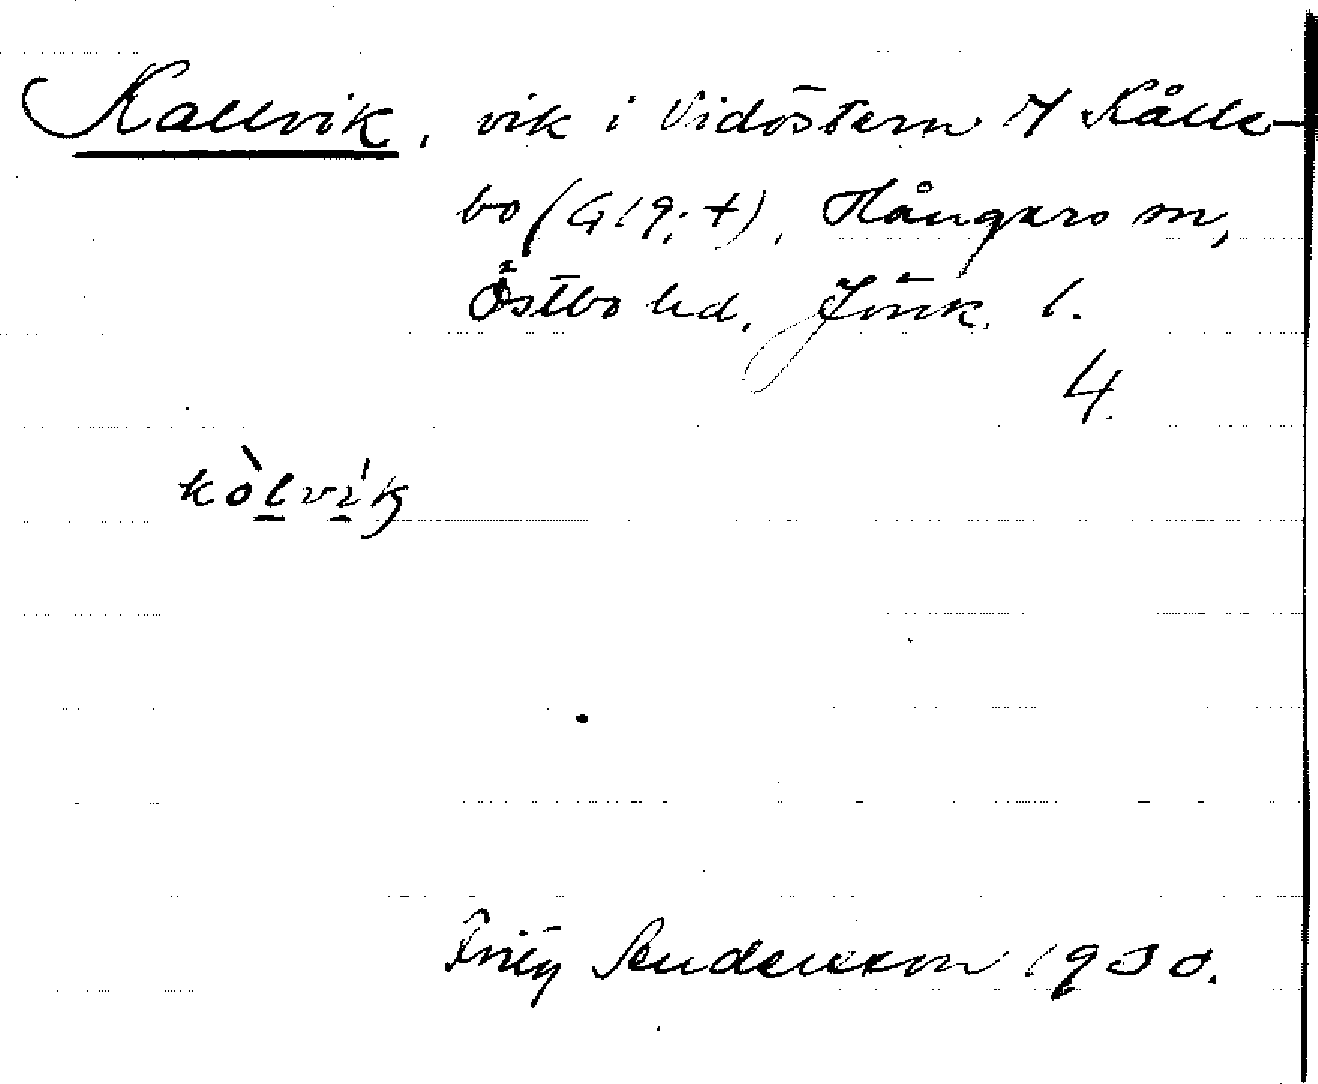 Kallvik, vik i Vidöstern V Kålle-
bo (G19; +), Hångers sn,
Östbo hd. Jönk. l.
4.
kòlvik
Andersson 1930.